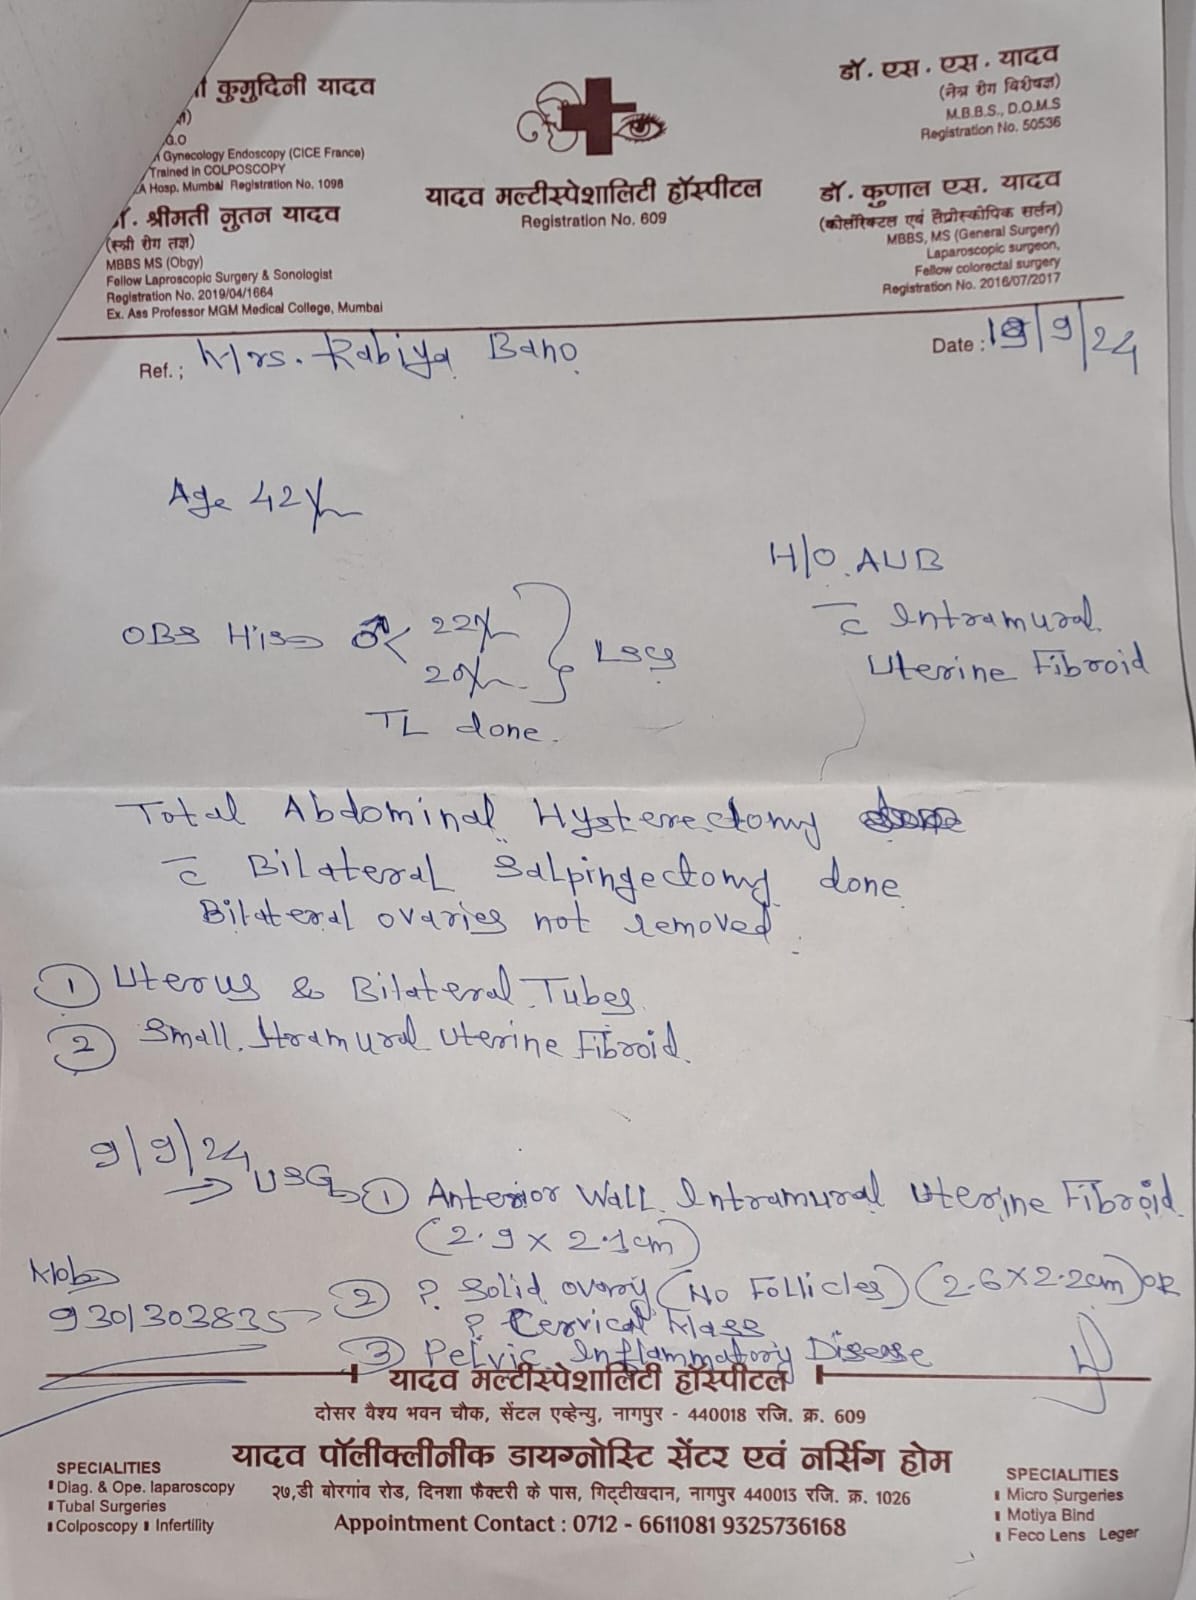 कुमुदिनी यादव
G.O
Gynecology Endoscopy (CICE France)
Trained in COLPOSCOPY
A Hosp. Mumbai Registration No. 1098
श्रीमती नुतन यादव
(स्त्री रोग तज्ञ)
MBBS MS (Obgy)
Fellow Laproscopic Surgery & Sonologist
Registration No. 2019/04/1664
Ex. Ass Professor MGM Medical College, Mumbai
यादव मल्टीस्पेशालिटी हॉस्पीटल
Registration No. 609
डॉ. एस. एस. यादव
(नेत्र रोग विशेषज्ञ)
M.B.B.S., D.O.M.S
Registration No. 50536
डॉ. कुणाल एस. यादव
(कोलोरेक्टल एवं लेप्रोस्कोपिक सर्जन)
MBBS, MS (General Surgery)
Laparoscopic surgeon,
Fellow colorectal surgery
Registration No. 2016/07/2017
Ref. ; Mrs. Rabiya Bano
Date : /9/24
Age 42
H/O AUB
c̄ Intramural
Uterine Fibroid
OBS His 22
20
LSCS
TL done.
Total Abdominal Hysterectomy
c̄ Bilateral Salpingectomy done
Bilateral ovaries not removed.
① Uterus & Bilateral Tubes
② Small Itramural Uterine Fibroid.
9/9/24
→ USG ① Anterior Wall Intramural Uterine Fibroid
(2.9 x 2.1cm)
② ? Solid ovary (No Follicles) (2.6 x 2.2cm) OR
? Cervical Mass
③ Pelvic Inflammatory Disease
Mob
9301303835
यादव मल्टीस्पेशालिटी हॉस्पीटल
दोसर वैश्य भवन चौक, सेंटल एव्हेन्यु, नागपुर - 440018 रजि. क्र. 609
यादव पॉलीक्लीनीक डायग्नोस्टि सेंटर एवं नर्सिंग होम
२७,डी बोरगांव रोड, दिनशा फैक्टरी के पास, गिट्टीखदान, नागपुर 440013 रजि. क्र. 1026
Appointment Contact : 0712 - 6611081 9325736168
SPECIALITIES
Diag. & Ope. laparoscopy
Tubal Surgeries
Colposcopy Infertility
SPECIALITIES
Micro Surgeries
Motiya Bind
Feco Lens Leger